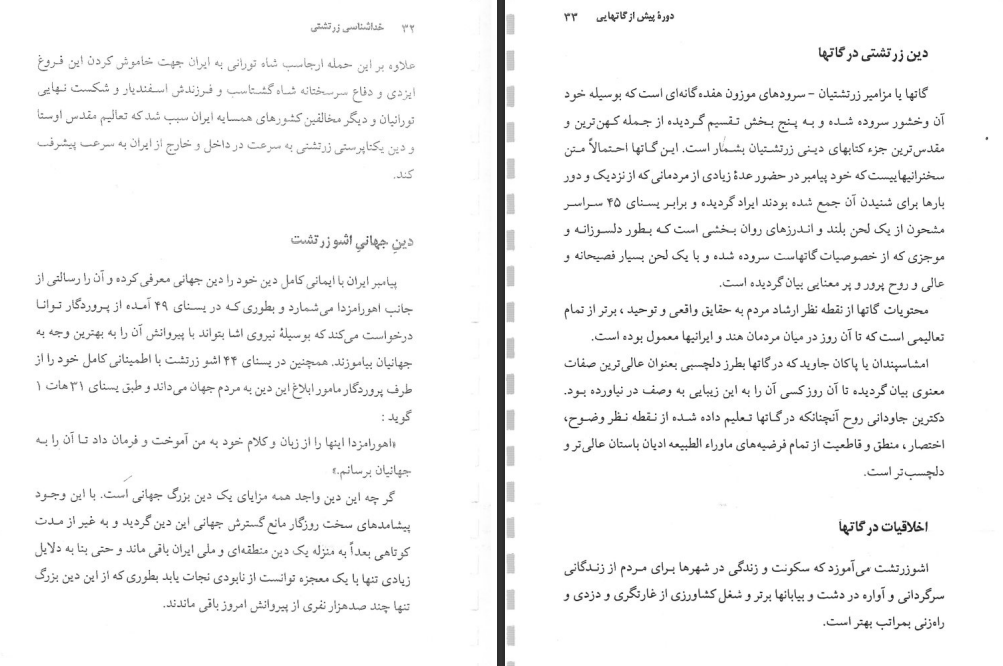 ۳۲ خداشناسی زرتشتی
علاوه بر این حمله ارجاسب شاه تورانی به ایران جهت خاموش کردن این فروغ
ایزدی و دفاع سرسختانه شاه گشتاسب و فرزندش اسفندیار و شکست نهایی
تورانیان و دیگر مخالفین کشورهای همسایه ایران سبب شد که تعالیم مقدس اوستا
و دین یکتاپرستی زرتشتی به سرعت در داخل و خارج از ایران به سرعت پیشرفت
کند.
دین جهانی اشو زرتشت
پیامبر ایران با ایمانی کامل دین خود را دین جهانی معرفی کرده و آن را رسالتی از
جانب اهورامزدا می‌شمارد و بطوری که در یسنای ۴۹ آمده از پروردگار توانا
درخواست می‌کند که بوسیلهٔ نیروی اشا بتواند با پیروانش آن را به بهترین وجه به
جهانیان بیاموزند. همچنین در یسنای ۴۴ اشو زرتشت با اطمینانی کامل خود را از
طرف پروردگار مامور ابلاغ این دین به مردم جهان می‌داند و طبق یسنای ۳۱ هات ۱
گوید :
«اهورامزدا اینها را از زبان و کلام خود به من آموخت و فرمان داد تا آن را به
جهانیان برسانم.»
گر چه این دین واجد همه مزایای یک دین بزرگ جهانی است. با این وجود
پیشامدهای سخت روزگار مانع گسترش جهانی این دین گردید و به غیر از مدت
کوتاهی بعداً به منزله یک دین منطقه‌ای و ملی ایران باقی ماند و حتی بنا به دلایل
زیادی تنها با یک معجزه توانست از نابودی نجات یابد بطوری که از این دین بزرگ
تنها چند صدهزار نفری از پیروانش امروز باقی ماندند.
دورهٔ پیش از گاتهایی ۳۳
دین زرتشتی در گاتها
گاتها یا مزامیر زرتشتیان - سرودهای موزون هفده‌گانه‌ای است که بوسیله خود
آن وخشور سروده شده و به پنج بخش تقسیم گردیده از جمله کهن‌ترین و
مقدس‌ترین جزء کتابهای دینی زرتشتیان بشمار است. این گاتها احتمالاً متن
سخنرانیهاییست که خود پیامبر در حضور عدهٔ زیادی از مردمانی که از نزدیک و دور
بارها برای شنیدن آن جمع شده بودند ایراد گردیده و برابر یسنای ۴۵ سراسر
مشحون از یک لحن بلند و اندرزهای روان بخشی است که بطور دلسوزانه و
موجزی که از خصوصیات گاتهاست سروده شده و با یک لحن بسیار فصیحانه و
عالی و روح پرور و پر معنایی بیان گردیده است.
محتویات گاتها از نقطه نظر ارشاد مردم به حقایق واقعی و توحید ، برتر از تمام
تعالیمی است که تا آن روز در میان مردمان هند و ایرانیها معمول بوده است.
امشاسپندان یا پاکان جاوید که در گاتها بطرز دلچسبی بعنوان عالی‌ترین صفات
معنوی بیان گردیده تا آن روز کسی آن را به این زیبایی به وصف در نیاورده بود.
دکترین جاودانی روح آنچنانکه در گاتها تعلیم داده شده از نقطه نظر وضوح،
اختصار ، منطق و قاطعیت از تمام فرضیه‌های ماوراء الطبیعه ادیان باستان عالی‌تر و
دلچسب‌تر است.
اخلاقیات در گاتها
اشوزرتشت می‌آموزد که سکونت و زندگی در شهرها برای مردم از زندگانی
سرگردانی و آواره در دشت و بیابانها برتر و شغل کشاورزی از غارتگری و دزدی و
راه‌زنی بمراتب بهتر است.